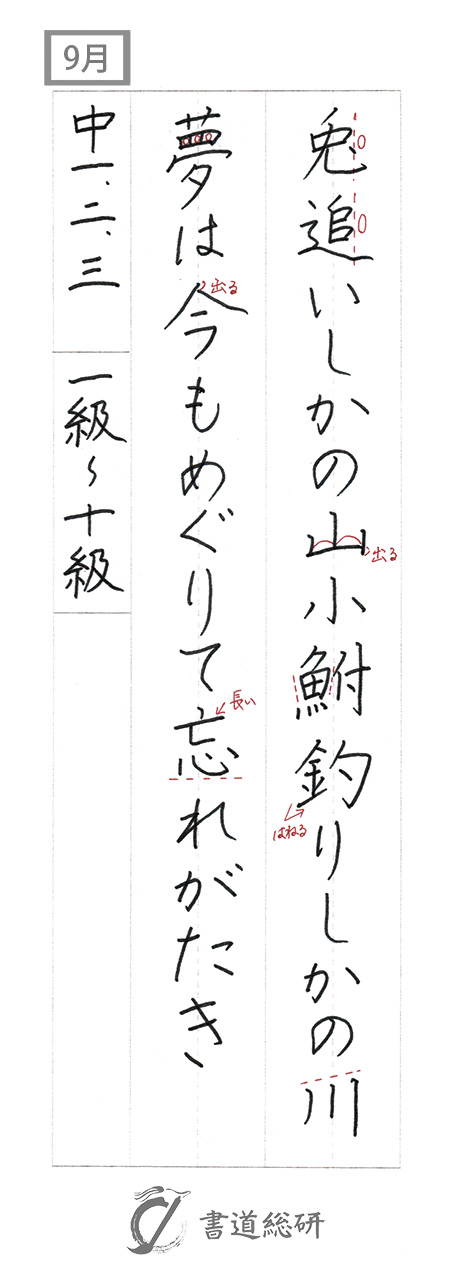 9月
兎追いしかの山小鮒釣りしかの川
出る
はねる
夢は今もめぐりて忘れがたき
出る
長い
中一、二、三
一級〜十級
書道総研